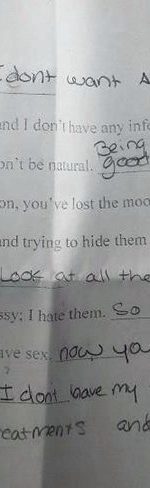 I dont want A
and I don't have any info
Being
on't be natural. good
on, you've lost the moo
and trying to hide them
Look at all the
ssy; I hate them. So
ave sex, now ya
I dont have my
eatments and